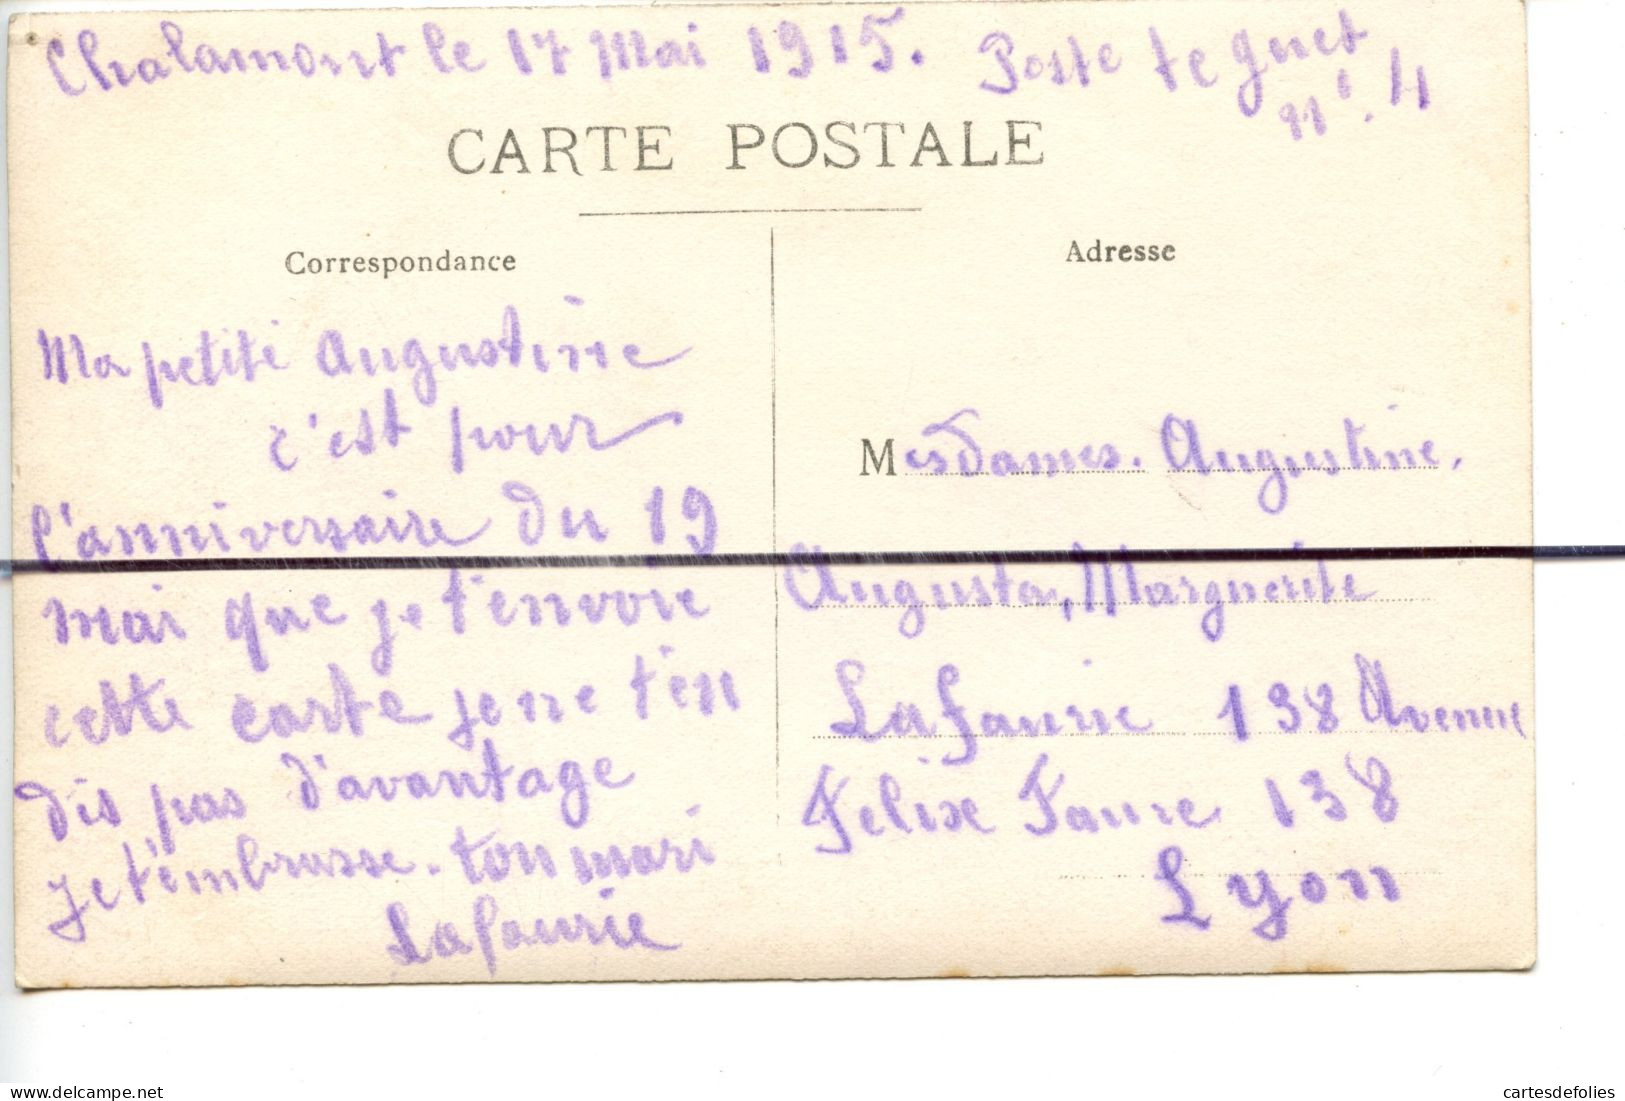 Chalamont le 17 Mai 1915. Poste te guet
n°. 4
CARTE POSTALE
Correspondance
Adresse
Ma petite Augustine
c'est pour
l'anniversaire du 19
mai que je t'envoie
cette carte je ne t'en
dis pas d'avantage
je t'embrasse. ton mari
Lafaurie
Mesdames. Augustine.
Augusta, Marguerite
Lafaurie 138 Avenue
Felix Faure 138
Lyon
delcampe.net
cartesdefolies